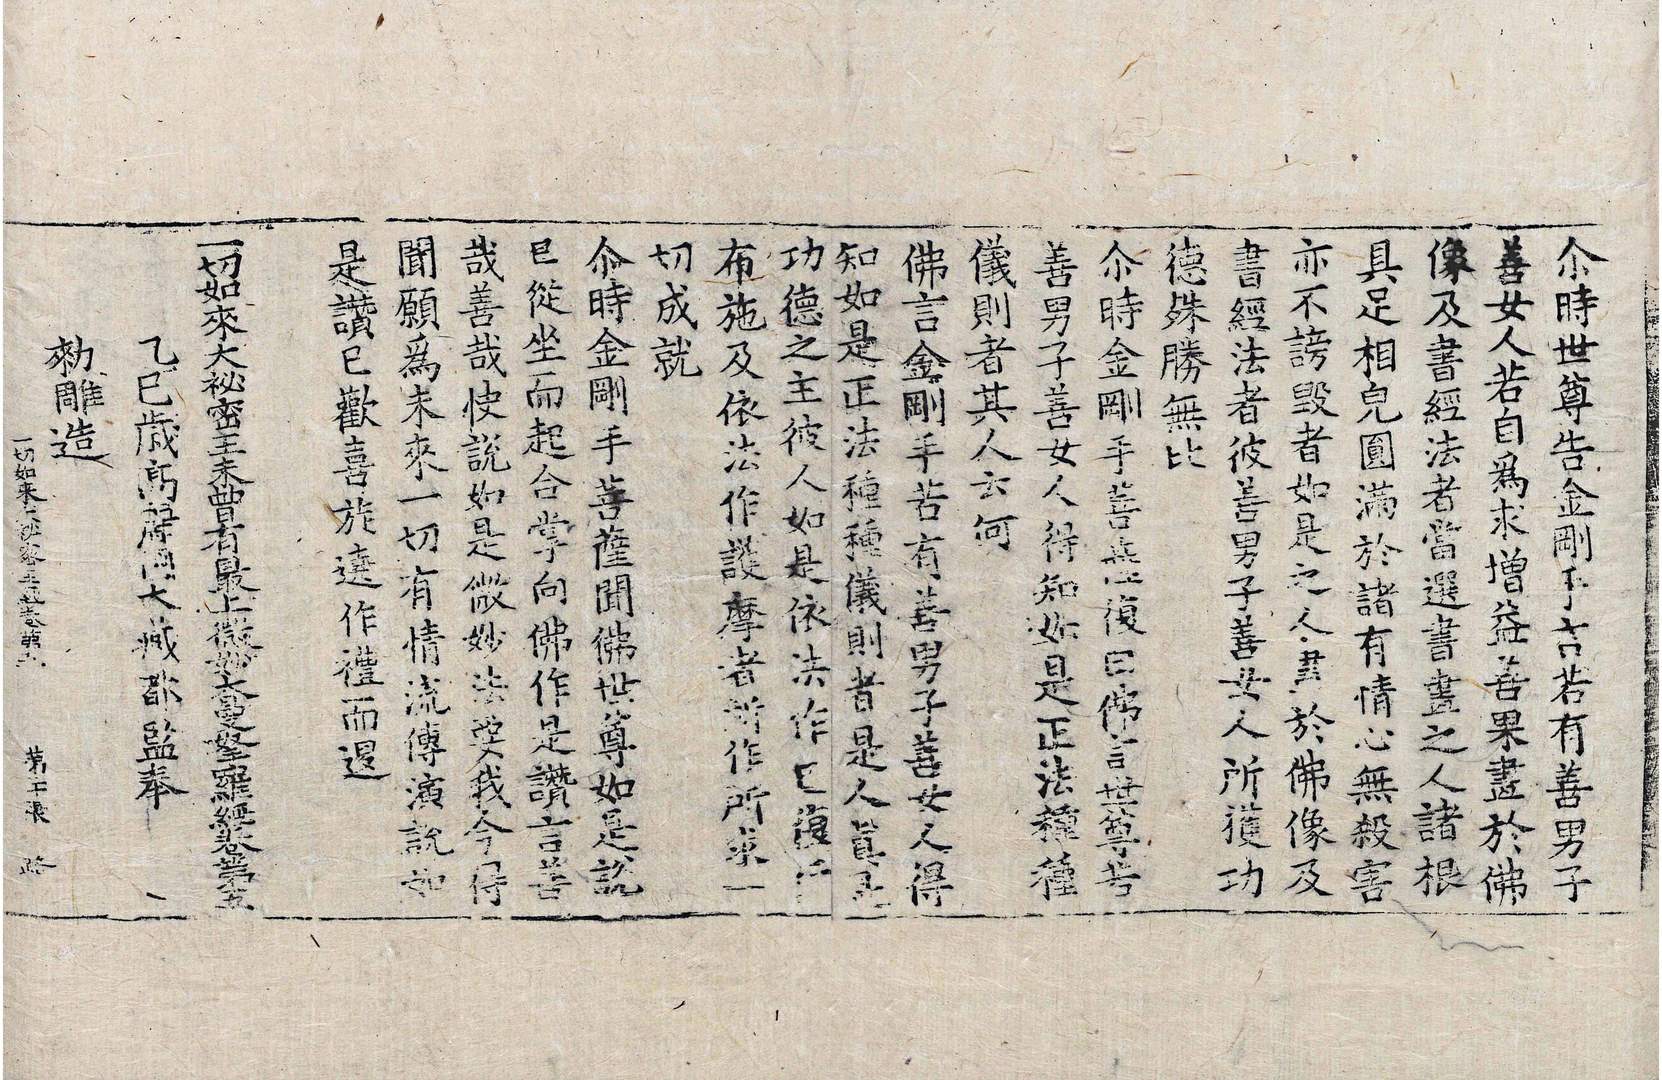 尒時世尊告金剛手言若有善男子
善女人若自爲求增益善果畫於佛
像及書經法者當選書畫之人諸根
具足相皃圓滿於諸有情心無殺害
亦不謗毀者如是之人畫於佛像及
書經法者彼善男子善女人所獲功
德殊勝無比
尒時金剛手菩薩復白佛言世尊若
善男子善女人得知如是正法種種
儀則者其人云何
佛言金剛手若有善男子善女人得
知如是正法種種儀則者是人眞是
功德之主彼人如是依法作已復
布施及依法作護摩者所作所求一
切成就
尒時金剛手菩薩聞佛世尊如是說
已從坐而起合掌向佛作是讚言善
哉善哉快說如是微妙法要我今得
聞願爲未來一切有情流傳演說如
是讚已歡喜旋遶作禮而退
一切如來大祕密王未曾有最上微妙大曼拏羅經卷第五
乙巳歲高麗國大藏都監奉
勑雕造
一切如來大祕密王經卷第五 第 張 路